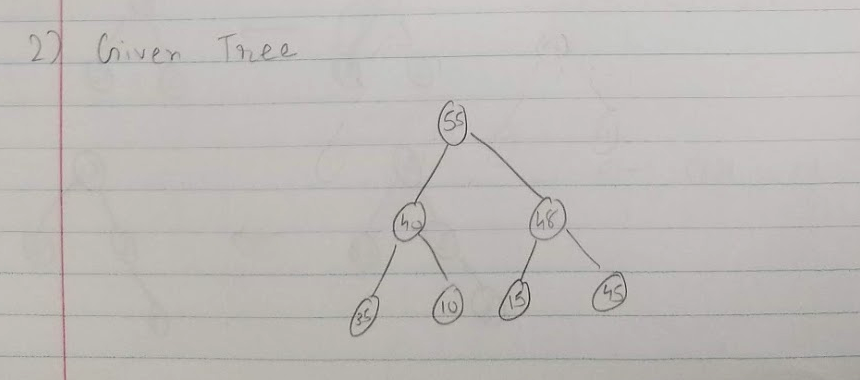 2) Given Tree
55
40 48
35 10 15 45